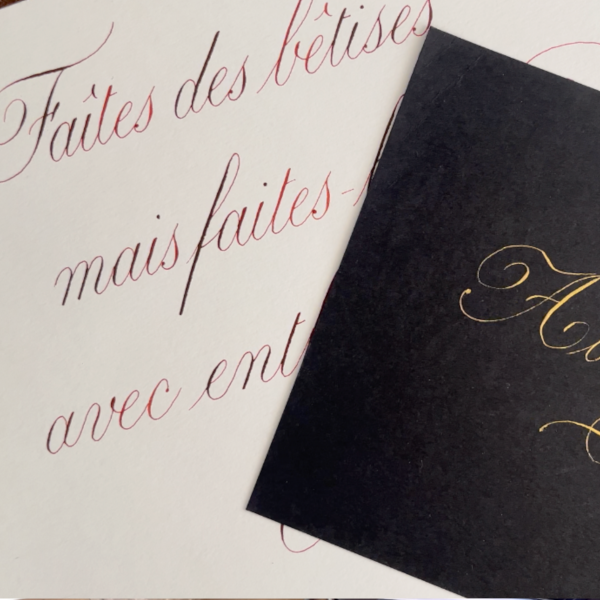 Faîtes des bêtises
mais faites-l
avec ent